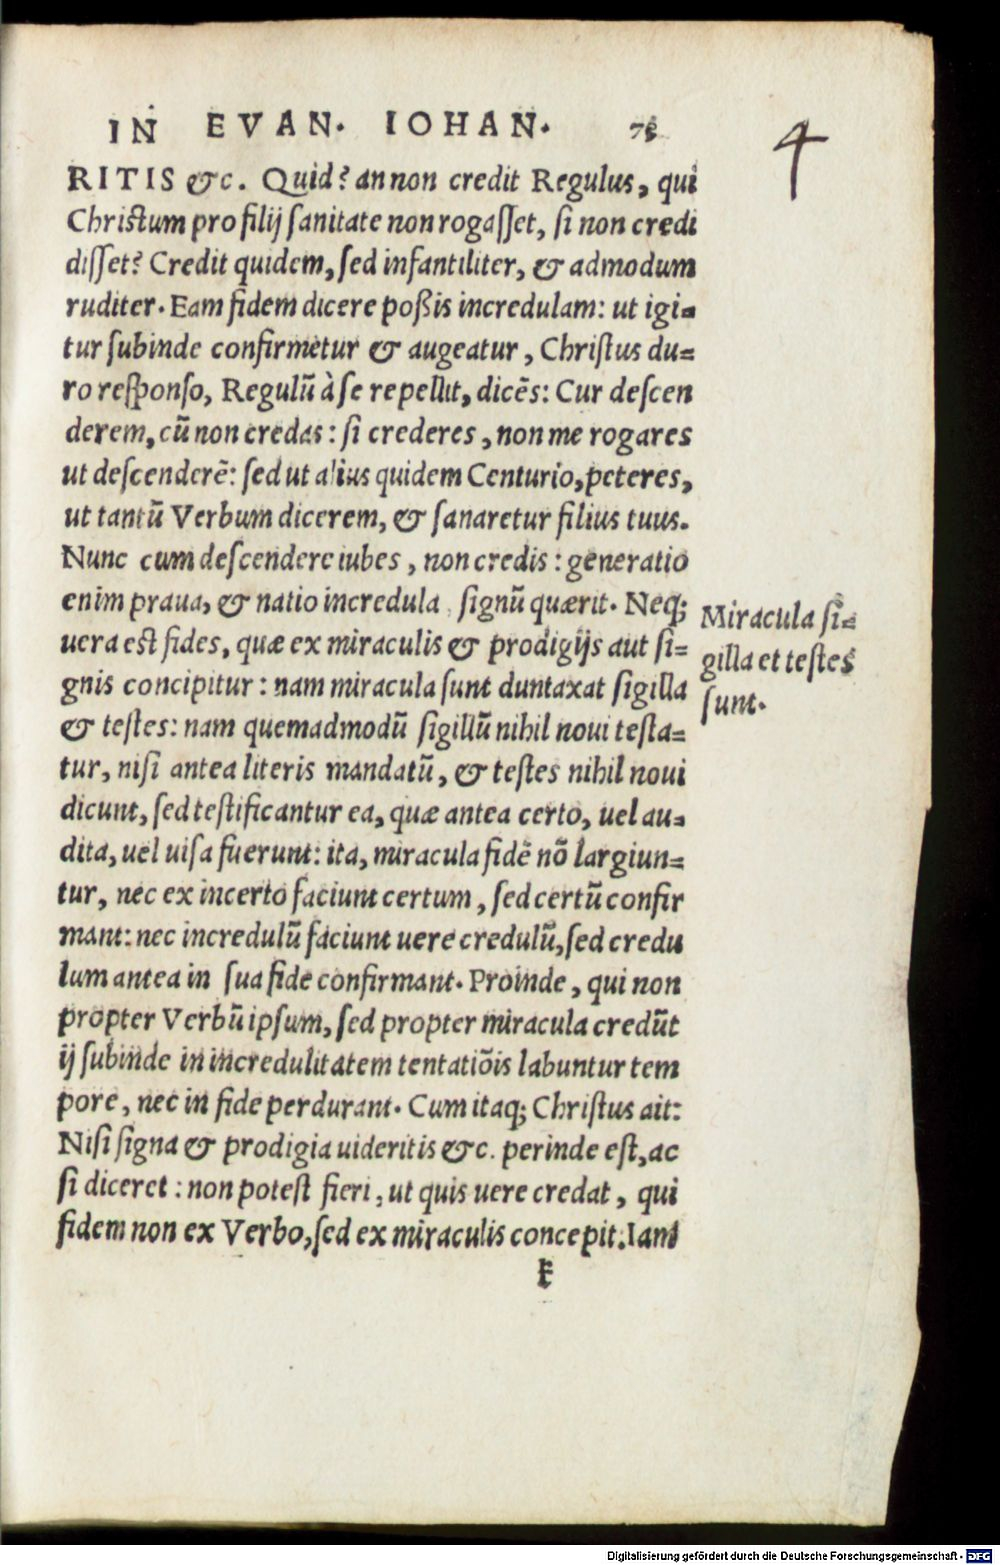 IN EVAN. IOHAN.
4
RITIS &c. Quid? an non credit Regulus, qui
Christum pro filij sanitate non rogasset, si non credi
disset? Credit quidem, sed infantiliter, & admodum
ruditer. Eam fidem dicere poßis incredulam: ut igi-
tur subinde confirmetur & augeatur, Christus du-
ro responso, Regulũ à se repellit, dicẽs: Cur descen
derem, cũ non credas: si crederes, non me rogares
ut descenderẽ: sed ut alius quidem Centurio, peteres,
ut tantũ Verbum dicerem, & sanaretur filius tuus.
Nunc cum descendere iubes, non credis: generatio
enim praua, & natio incredula signũ quærit. Neq;
uera est fides, quæ ex miraculis & prodigijs aut si-
gnis concipitur: nam miracula sunt duntaxat sigilla
& testes: nam quemadmodũ sigillũ nihil noui testa-
tur, nisi antea literis mandatũ, & testes nihil noui
dicunt, sed testificantur ea, quæ antea certo, uel au-
dita, uel uisa fuerunt: ita, miracula fidẽ nõ largiun-
tur, nec ex incerto faciunt certum, sed certũ confir
mant: nec incredulũ faciunt uere credulũ, sed credu
lum antea in sua fide confirmant. Proinde, qui non
propter Verbũ ipsum, sed propter miracula credũt
ij subinde in incredulitatem tentatiõis labuntur tem
pore, nec in fide perdurant. Cum itaq; Christus ait:
Nisi signa & prodigia uideritis &c. perinde est, ac
si diceret: non potest fieri, ut quis uere credat, qui
fidem non ex Verbo, sed ex miraculis concepit. Iam
Miracula si-
gilla et testes
sunt.
k
Digitalisierung gefördert durch die Deutsche Forschungsgemeinschaft - DFG